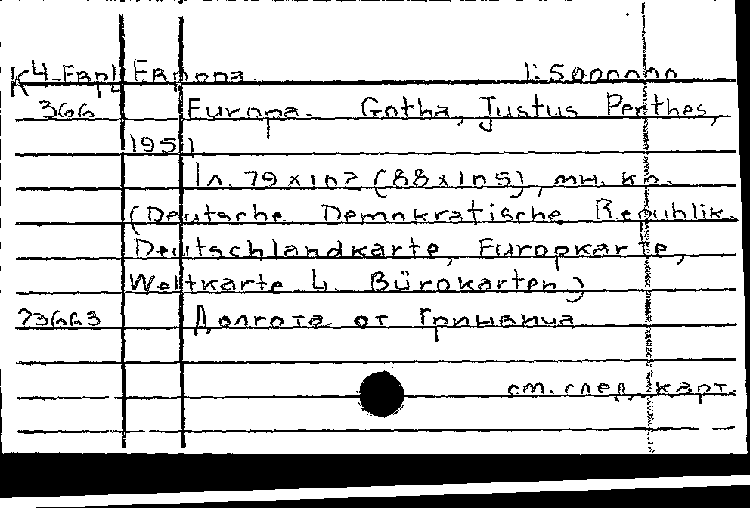 К4-Евр Европа 1:5000000
366 Europa. Gotha, Justus Perthes,
1951
1л. 79х107 (88х105), мн. кр.
(Deutsche Demokratische Republik.
Deutschlandkarte, Europkarte,
Weltkarte 4 Bürokarten)
73663 Долгота от Гринвича
см. след. карт.